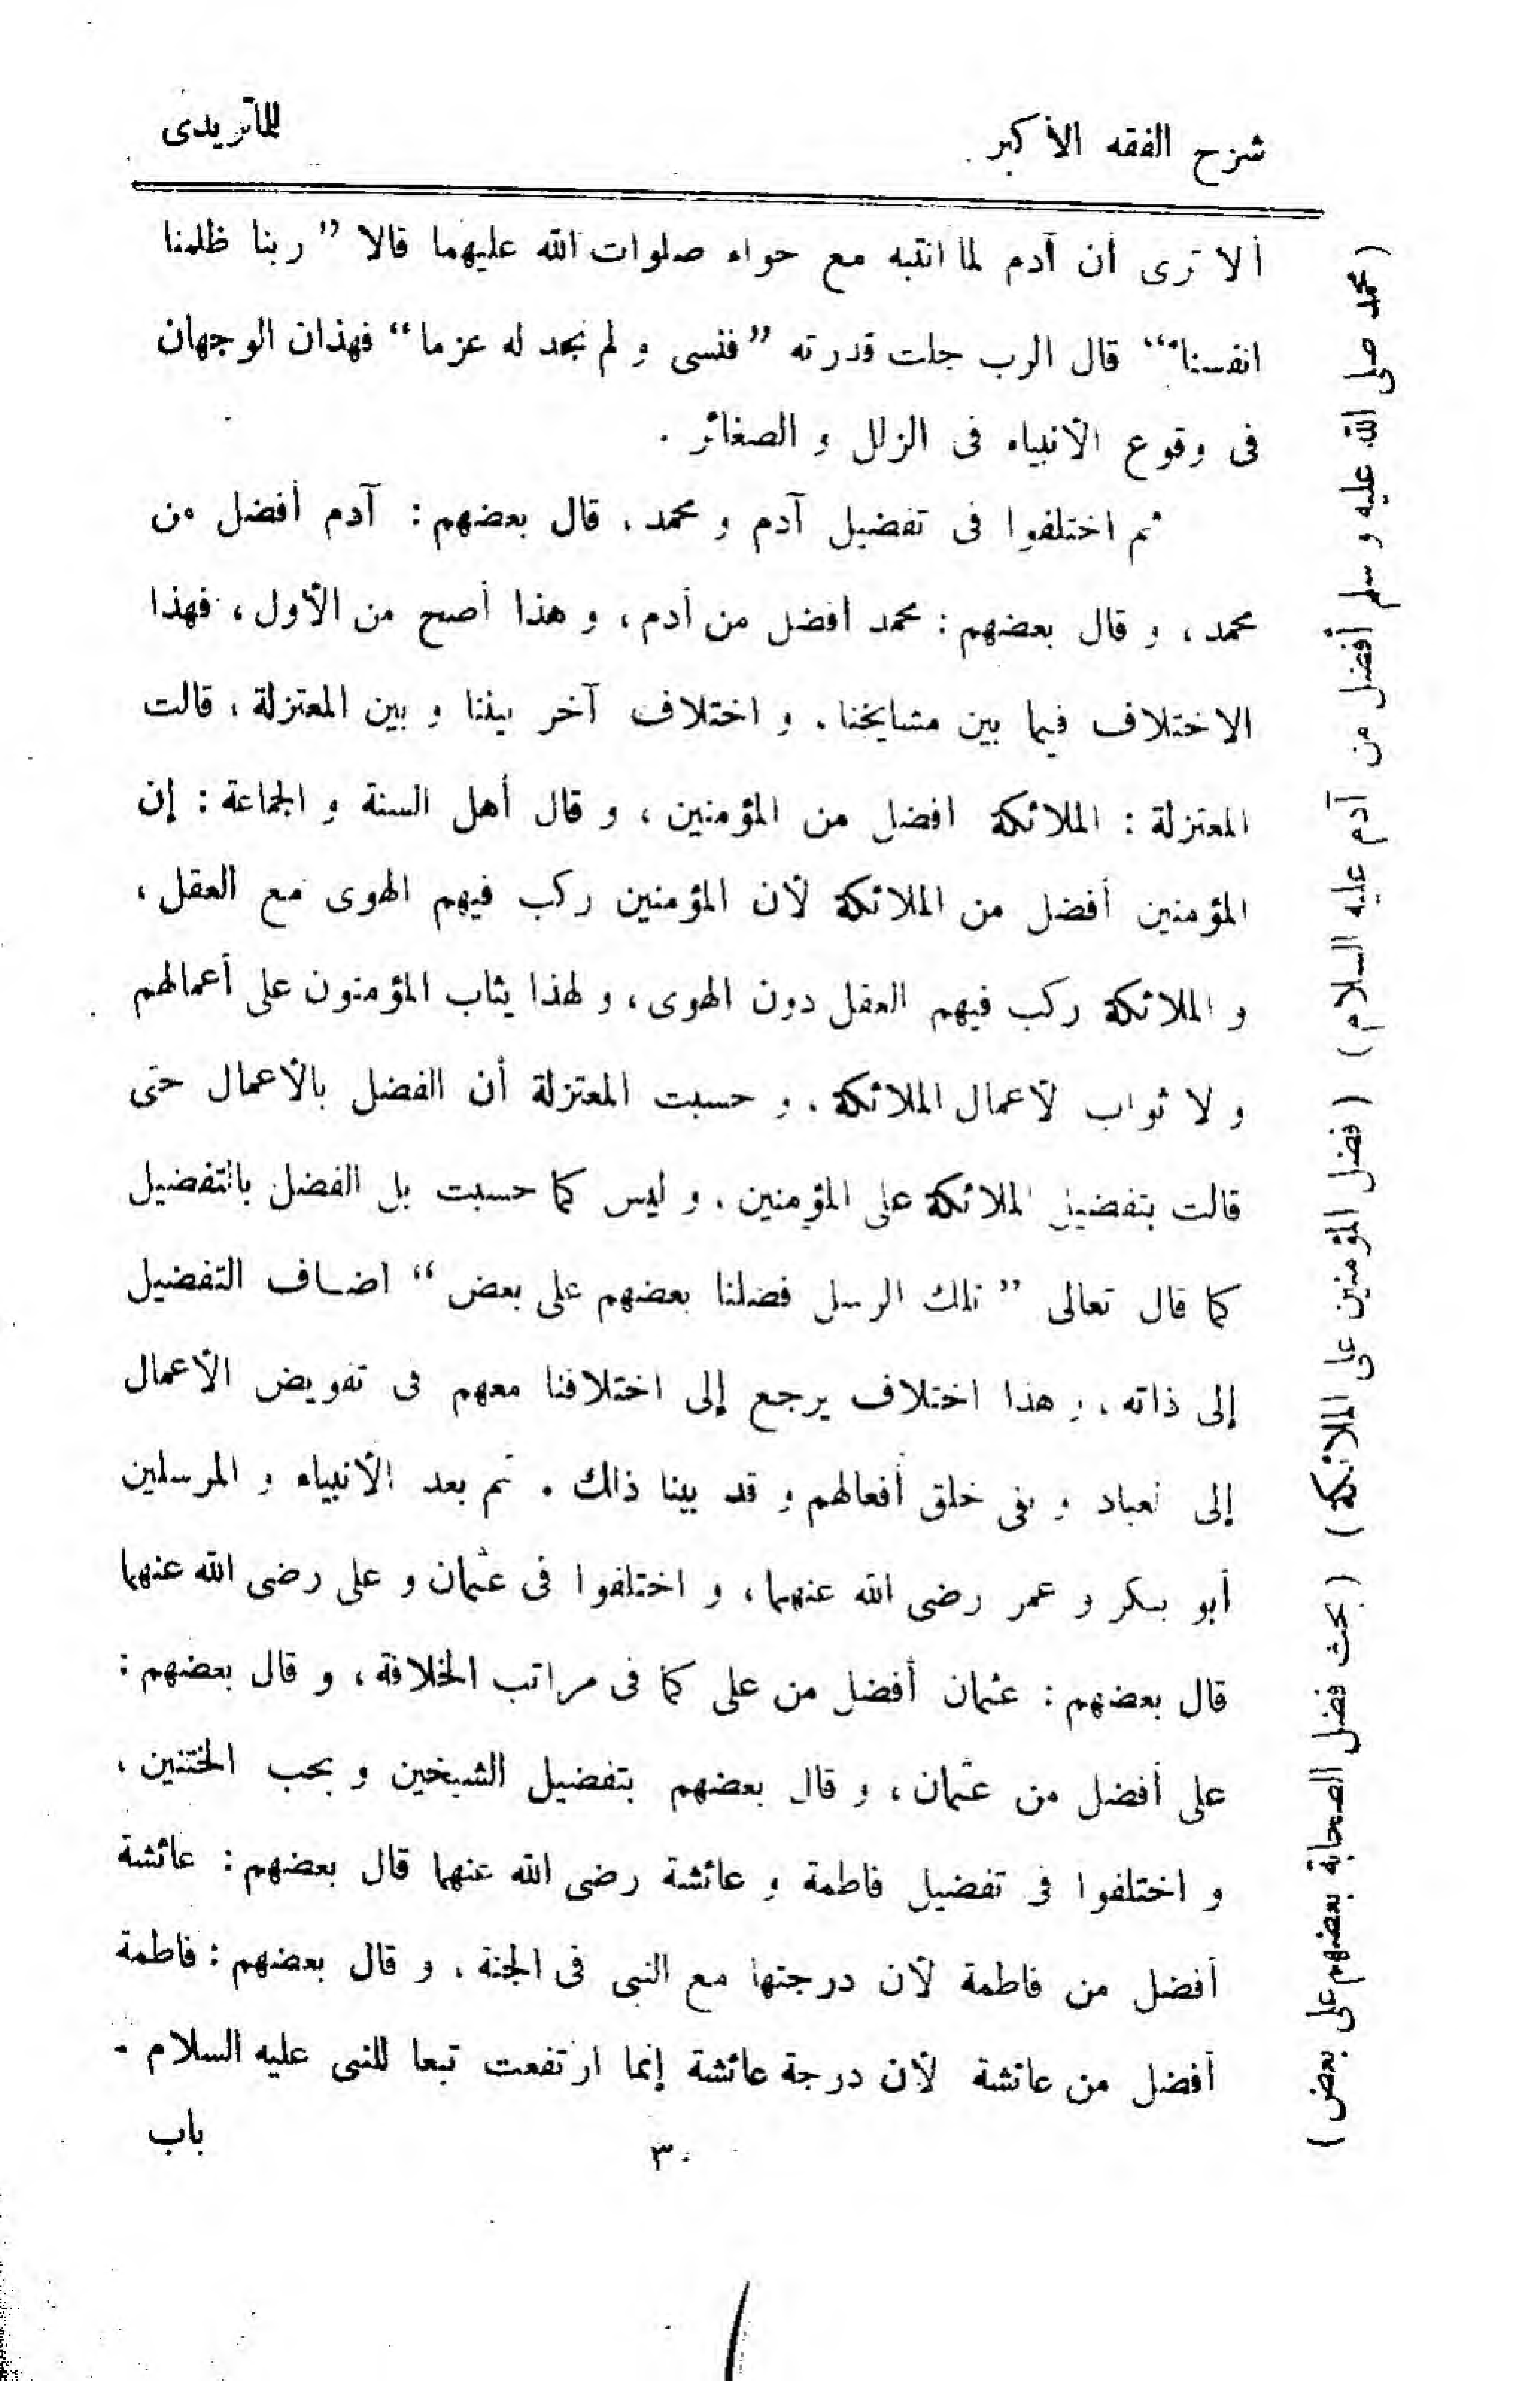 شرح الفقه الأكبر
للماتريدى
ألا ترى أن آدم لما انتبه مع حواء صلوات الله عليهما قالا ” ربنا ظلمنا
انفسنا “ قال الرب جلت قدرته ” فنسى و لم نجد له عزما “ فهذان الوجهان
فى وقوع الأنبياء فى الزلل و الصغائر .
ثم اختلفوا فى تفضيل آدم و محمد ، قال بعضهم : آدم أفضل من
محمد ، و قال بعضهم : محمد افضل من أدم ، و هذا أصح من الأول ، فهذا
الاختلاف فيما بين مشايخنا . و اختلاف آخر بيننا و بين المعتزلة ، قالت
المعتزلة : الملائكة افضل من المؤمنين ، و قال أهل السنة و الجماعة : إن
المؤمنين أفضل من الملائكة لأن المؤمنين ركب فيهم الهوى مع العقل ،
و الملائكة ركب فيهم العقل دون الهوى ، و لهذا يثاب المؤمنون على أعمالهم
و لا ثواب لأعمال الملائكة . و حسبت المعتزلة أن الفضل بالأعمال حتى
قالت بتفضيل الملائكة على المؤمنين ، و ليس كما حسبت بل الفضل بالتفضيل
كما قال تعالى ” تلك الرسل فضلنا بعضهم على بعض “ اضاف التفضيل
إلى ذاته ، و هذا اختلاف يرجع إلى اختلافنا معهم فى تفويض الأعمال
إلى العباد و نفى خلق أفعالهم و قد بينا ذالك . ثم بعد الأنبياء و المرسلين
أبو بكر و عمر رضى الله عنهما ، و اختلفوا فى عثمان و على رضى الله عنهما
قال بعضهم : عثمان أفضل من على كما فى مراتب الخلافة ، و قال بعضهم :
على أفضل من عثمان ، و قال بعضهم بتفضيل الشيخين و بحب الختنين ،
و اختلفوا فى تفضيل فاطمة و عائشة رضى الله عنهما قال بعضهم : عائشة
أفضل من فاطمة لأن درجتها مع النبى فى الجنة . و قال بعضهم : فاطمة
أفضل من عائشة لأن درجة عائشة إنما ارتفعت تبعا للنبى عليه السلام .
باب
٣٠
( محمد صلى الله عليه و سلم أفضل من آدم عليه السلام ) ( فضل المؤمنين على الملائكة ) ( بحث فضل الصحابة بعضهم على بعض )